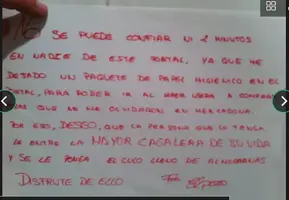 NO SE PUEDE CONFIAR NI 2 MINUTOS
EN NADIE DE ESTE PORTAL, YA QUE HE
DEJADO UN PAQUETE DE PAPEL HIGIENICO EN EL
PORTAL, PARA PODER IR AL A COMPRAR
QUE SE ME OLVIDARON EN MERCADONA.
POR ESO, DESEO, QUE LA PERSONA QUE LO TENGA
LE ENTRE LA MAYOR CAGALERA DE SU VIDA
Y SE LE PONGA EL CULO LLENO DE ALMORRANAS
DISFRUTE DE ELLO